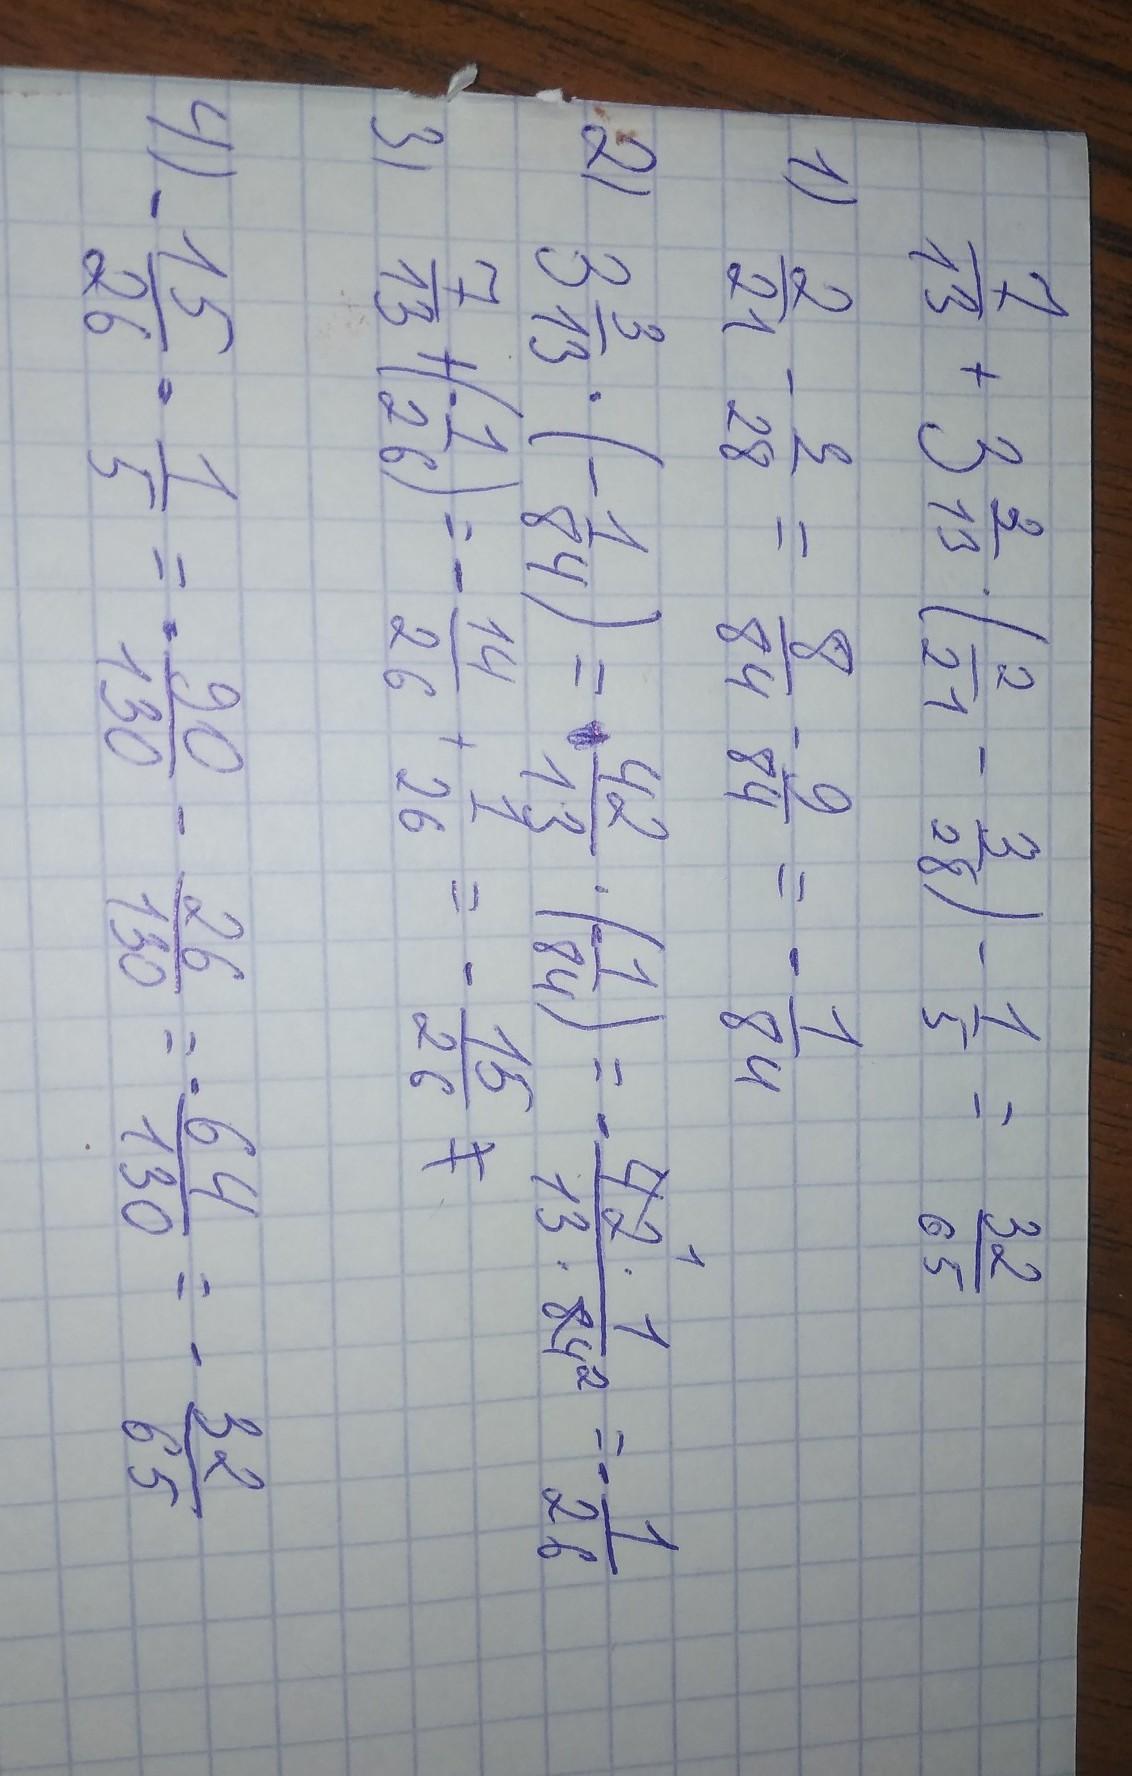 7/13 + 3 3/13 · (2/21 - 3/28) - 1/5 = 32/65
1) 2/21 - 2/28 = 8/84 - 9/84 = - 1/84
2) 3 3/13 · (- 1/84) = 42/13 · (- 1/84) = - 42 · 1/13 · 84 1 2 = - 1/26
3) 7/13 + (- 1/26) = - 14/26 + 1/26 = - 15/26
4) - 15/26 - 1/5 = - 90/130 - 26/130 = - 64/130 = - 32/65